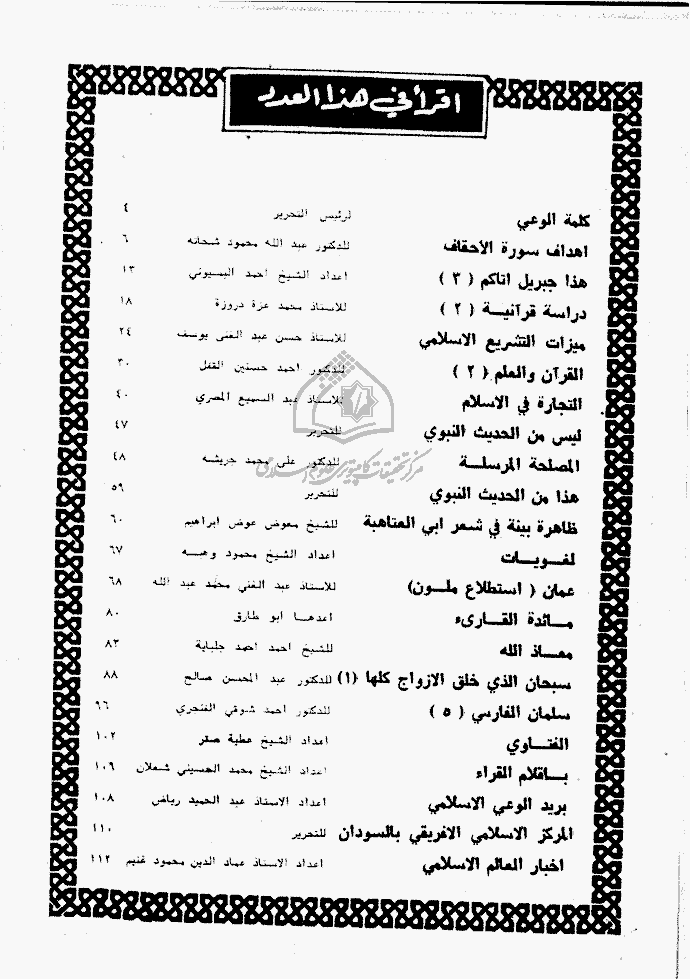 اقرأ في هذا العدد
كلمة الوعي لرئيس التحرير ٤
اهداف سورة الأحقاف للدكتور عبد الله محمود شحاته ٦
هذا جبريل اتاكم ( ٣ ) اعداد الشيخ احمد البسيوني ١٣
دراسة قرآنيـــة ( ٢ ) للاستاذ محمد عزة دروزة ١٨
ميزات التشريع الاسلامي للاستاذ حسن عبد الغنى يوسف ٢٤
القرآن والعلم ( ٢ ) للدكتور احمد حسنين القفل ٣٠
التجارة في الاسلام للاستاذ عبد السميع المصري ٤٠
ليس من الحديث النبوي للتحرير ٤٧
المصلحة المرسلـــة للدكتور على محمد جريشه ٤٨
هذا من الحديث النبوي للتحرير ٥٩
ظاهرة بينة في شعر ابي العتاهية للشيخ معوض عوض ابراهيم ٦٠
لغـــويـــات اعداد الشيخ محمود وهبــه ٦٧
عمان ( استطلاع ملـــون) للاستاذ عبد الغني محمد عبد الله ٦٨
مـــائدة القـــارىء اعدهــا ابو طارق ٨٠
معـــاذ الله للشيخ احمد احمد جلباية ٨٣
سبحان الذي خلق الازواج كلها (١) للدكتور عبد المحسن صالح ٨٨
سلمان الفارسي ( ٥ ) للدكتور احمد شوقي الفنجري ٩٦
الفتـــاوي اعداد الشيخ عطية صقر ١٠٢
بـــاقلام القراء اعداد الشيخ محمد الحسيني شعلان ١٠٦
بريد الوعي الاسلامي اعداد الاستاذ عبد الحميد رياض ١٠٨
المركز الاسلامي الافريقي بالسودان للتحرير ١١٠
اخبار العالم الاسلامي اعداد الاستاذ عماد الدين محمود غنيم ١١٢
مرکز تحقیقات کامپیوتری علوم اسلامی